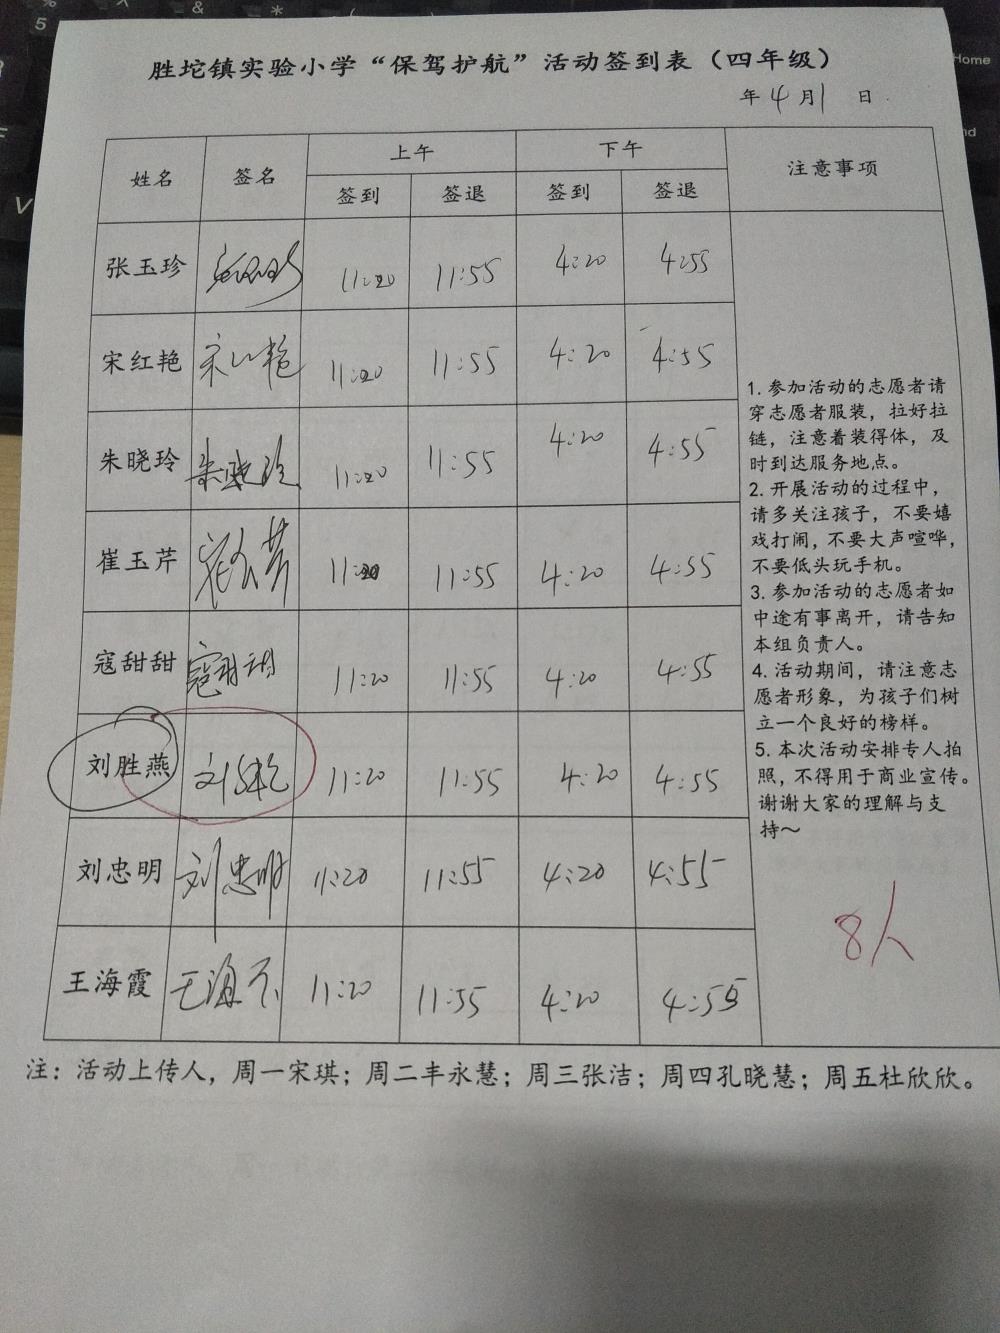 胜坨镇实验小学“保驾护航”活动签到表（四年级）
年 4 月 1 日
姓名 签名 上午 下午 注意事项
签到 签退 签到 签退
张玉珍 11:20 11:55 4:20 4:55
宋红艳 宋红艳 11:20 11:55 4:20 4:55
朱晓玲 朱晓玲 11:20 11:55 4:20 4:55
崔玉芹 崔玉芹 11:20 11:55 4:20 4:55
寇甜甜 寇甜甜 11:20 11:55 4:20 4:55
刘胜燕 11:20 11:55 4:20 4:55
刘忠明 刘忠明 11:20 11:55 4:20 4:55
王海霞 王海霞 11:20 11:55 4:20 4:55
1. 参加活动的志愿者请
穿志愿者服装，拉好拉
链，注意着装得体，及
时到达服务地点。
2. 开展活动的过程中，
请多关注孩子，不要嬉
戏打闹，不要大声喧哗，
不要低头玩手机。
3. 参加活动的志愿者如
中途有事离开，请告知
本组负责人。
4. 活动期间，请注意志
愿者形象，为孩子们树
立一个良好的榜样。
5. 本次活动安排专人拍
照，不得用于商业宣传。
谢谢大家的理解与支
持～
8人
注：活动上传人，周一宋琪；周二丰永慧；周三张洁；周四孔晓慧；周五杜欣欣。
Home